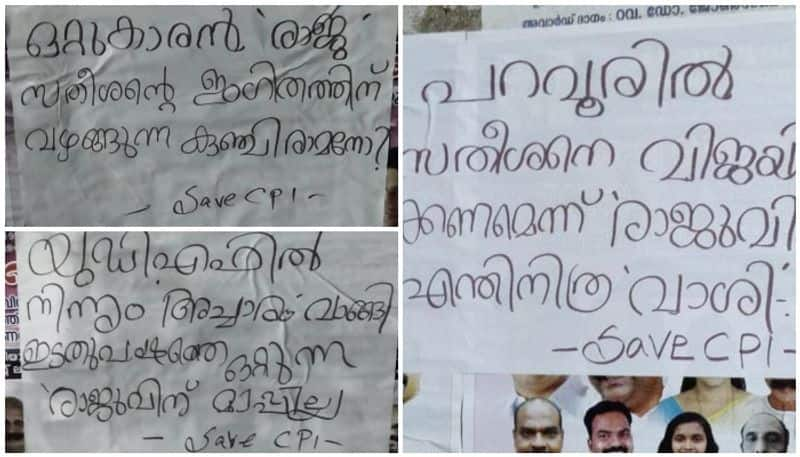 ഒറ്റുകാരൻ 'രാജു'
സതീശന്റെ ഇംഗിതത്തിന്
വഴങ്ങുന്ന കുഞ്ഞിരാമനോ?
- Save CPI -
യുഡിഎഫിൽ
നിന്നും അച്ചാരം വാങ്ങി
ഇടതുപക്ഷത്തെ ഒറ്റുന്ന
'രാജുവിന് മാപ്പില്ല
- Save CPI -
അവാർഡ് ദാനം : റവ. ഡോ.
പറവൂരിൽ
സതീശനെ വിജയി
ക്കണമെന്ന് 'രാജുവി
എന്തിനിത്ര 'വാശി'.
- Save CPI -